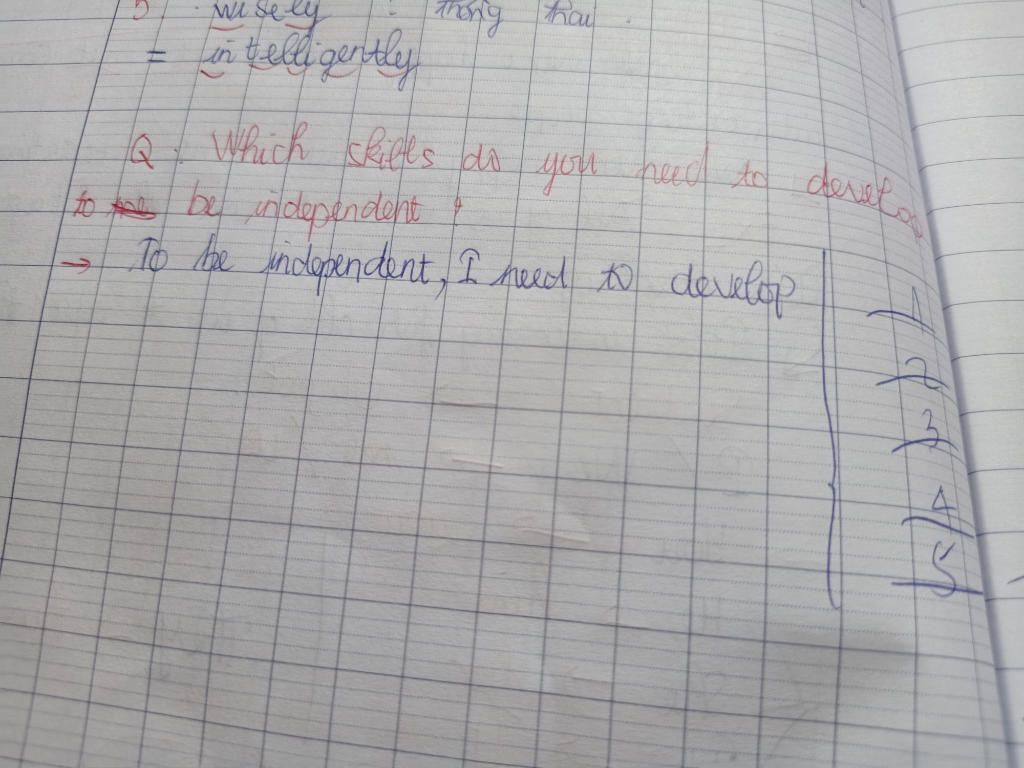 wisely : thông thái
= intelligently
Q : Which skills do you need to develop
to be independent ?
→ To be independent, I need to develop
1
2
3
4
5